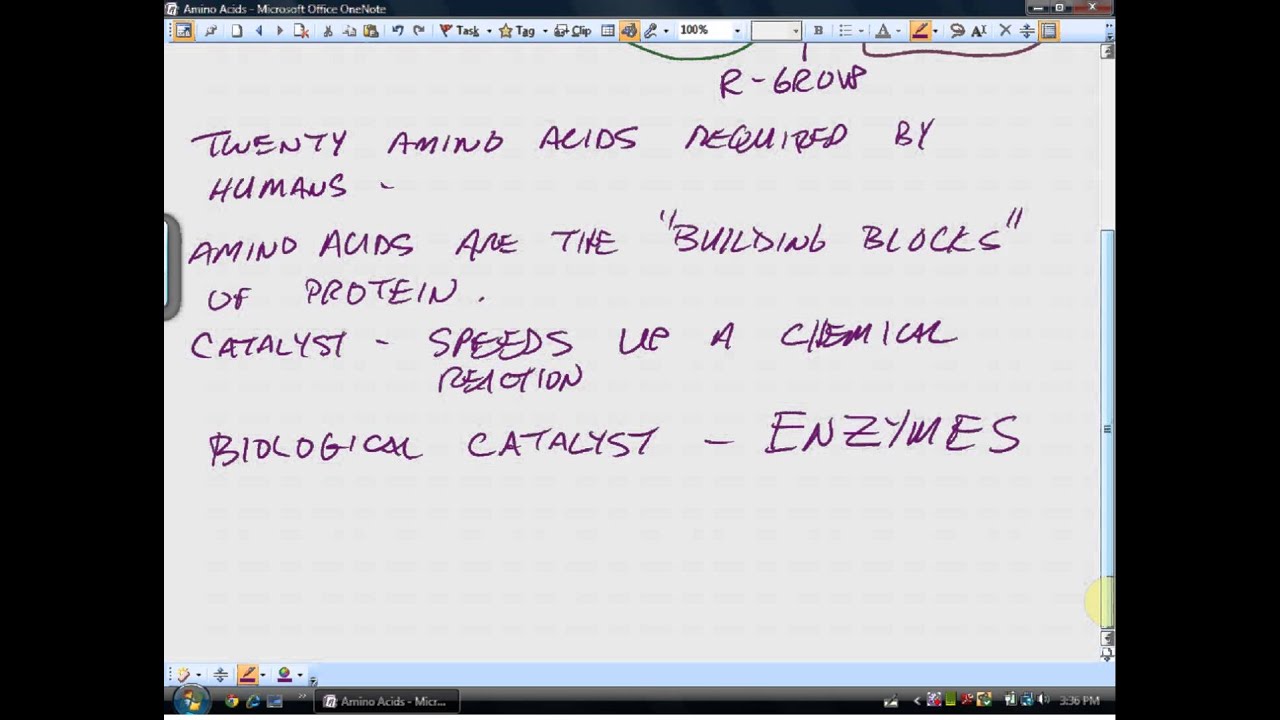 Amino Acids - Microsoft Office OneNote
Task Tag Clip 100% B A
R-GROUP
TWENTY AMINO ACIDS REQUIRED BY
HUMANS -
AMINO ACIDS ARE THE "BUILDING BLOCKS"
OF PROTEIN.
CATALYST - SPEEDS UP A CHEMICAL
REACTION
BIOLOGICAL CATALYST - ENZYMES
Amino Acids - Micr...
3:36 PM